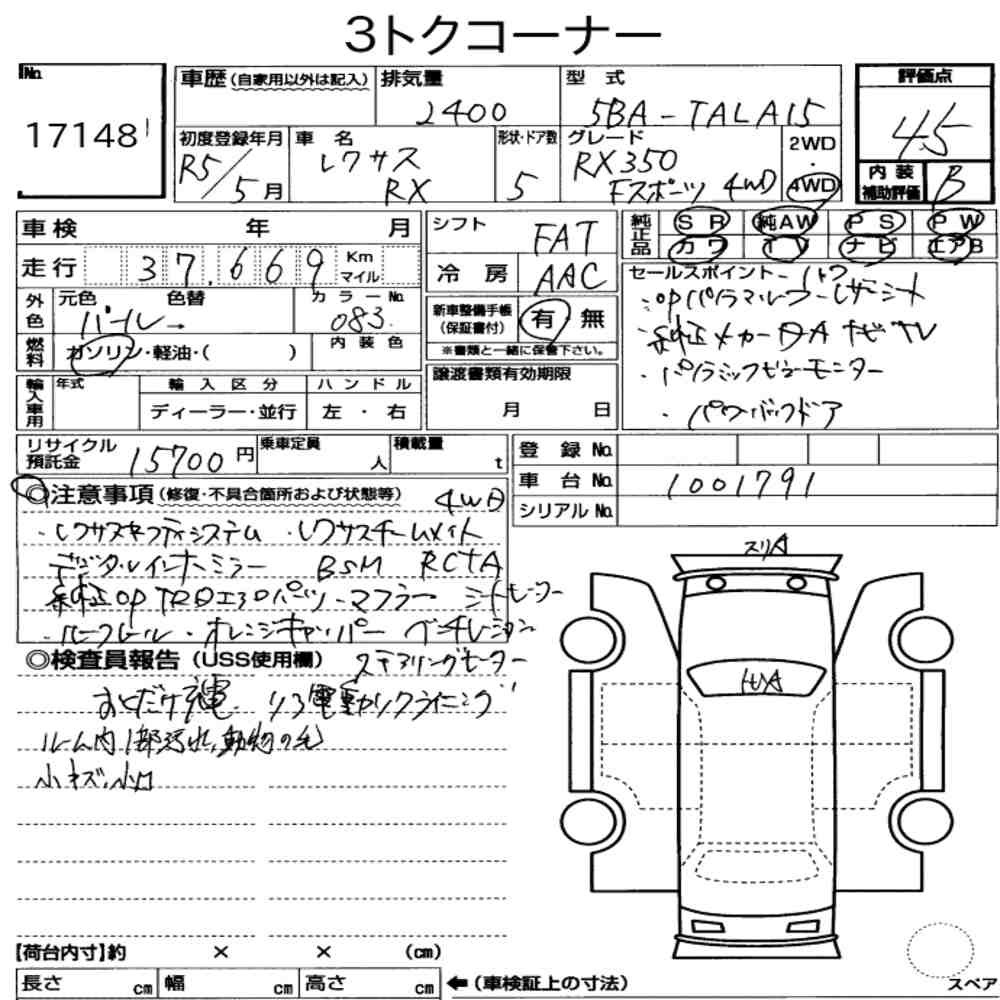 3トクコーナー
No.
17148
車歴 (自家用以外は記入)
排気量
2400
型式
5BA-TALA15
評価点
4.5
初度登録年月
R5/5月
車名
レクサス
RX
形状・ドア数
5
グレード
RX350
Fスポーツ 4WD
2WD
・
4WD
内装
補助評価
B
車検 年 月
シフト
FAT
純正品
SR 純AW PS PW
カワ TV ナビ エアB
走行 37,669 Km
マイル
冷房
AAC
セールスポイント
・OPパノラマルーフ・レザーシート
・純正メーカーDAナビTV
・パノラミックビューモニター
・パワーバックドア
外色
元色 色替
パール→
カラーNo.
083
新車整備手帳
(保証書付)
有 無
※書類と一緒に保管下さい。
燃料
ガソリン・軽油・( )
内装色
輸入車用
年式
輸入区分
ディーラー・並行
ハンドル
左・右
譲渡書類有効期限
月 日
リサイクル
預託金
15700円
乗車定員
人
積載量
t
登録No.
車台No.
1001791
シリアルNo.
◎注意事項 (修復・不具合箇所および状態等) 4WD
・レクサスセーフティシステム ・レクサスチームメイト
デジタルインナーミラー BSM RCTA
純正OP TRDエアロパーツ・マフラー シートヒーター
・ルーフレール・オレンジキャリパー ベンチレーション
◎検査員報告 (USS使用欄)
ステアリングヒーター
おくだけ充電 リア電動リクライニング
ルーム内1部汚れ、動物の毛
小キズ、小凹
スリA
トビA
【荷台内寸】約 × × (cm)
長さ cm 幅 cm 高さ cm
←(車検証上の寸法)
スペア